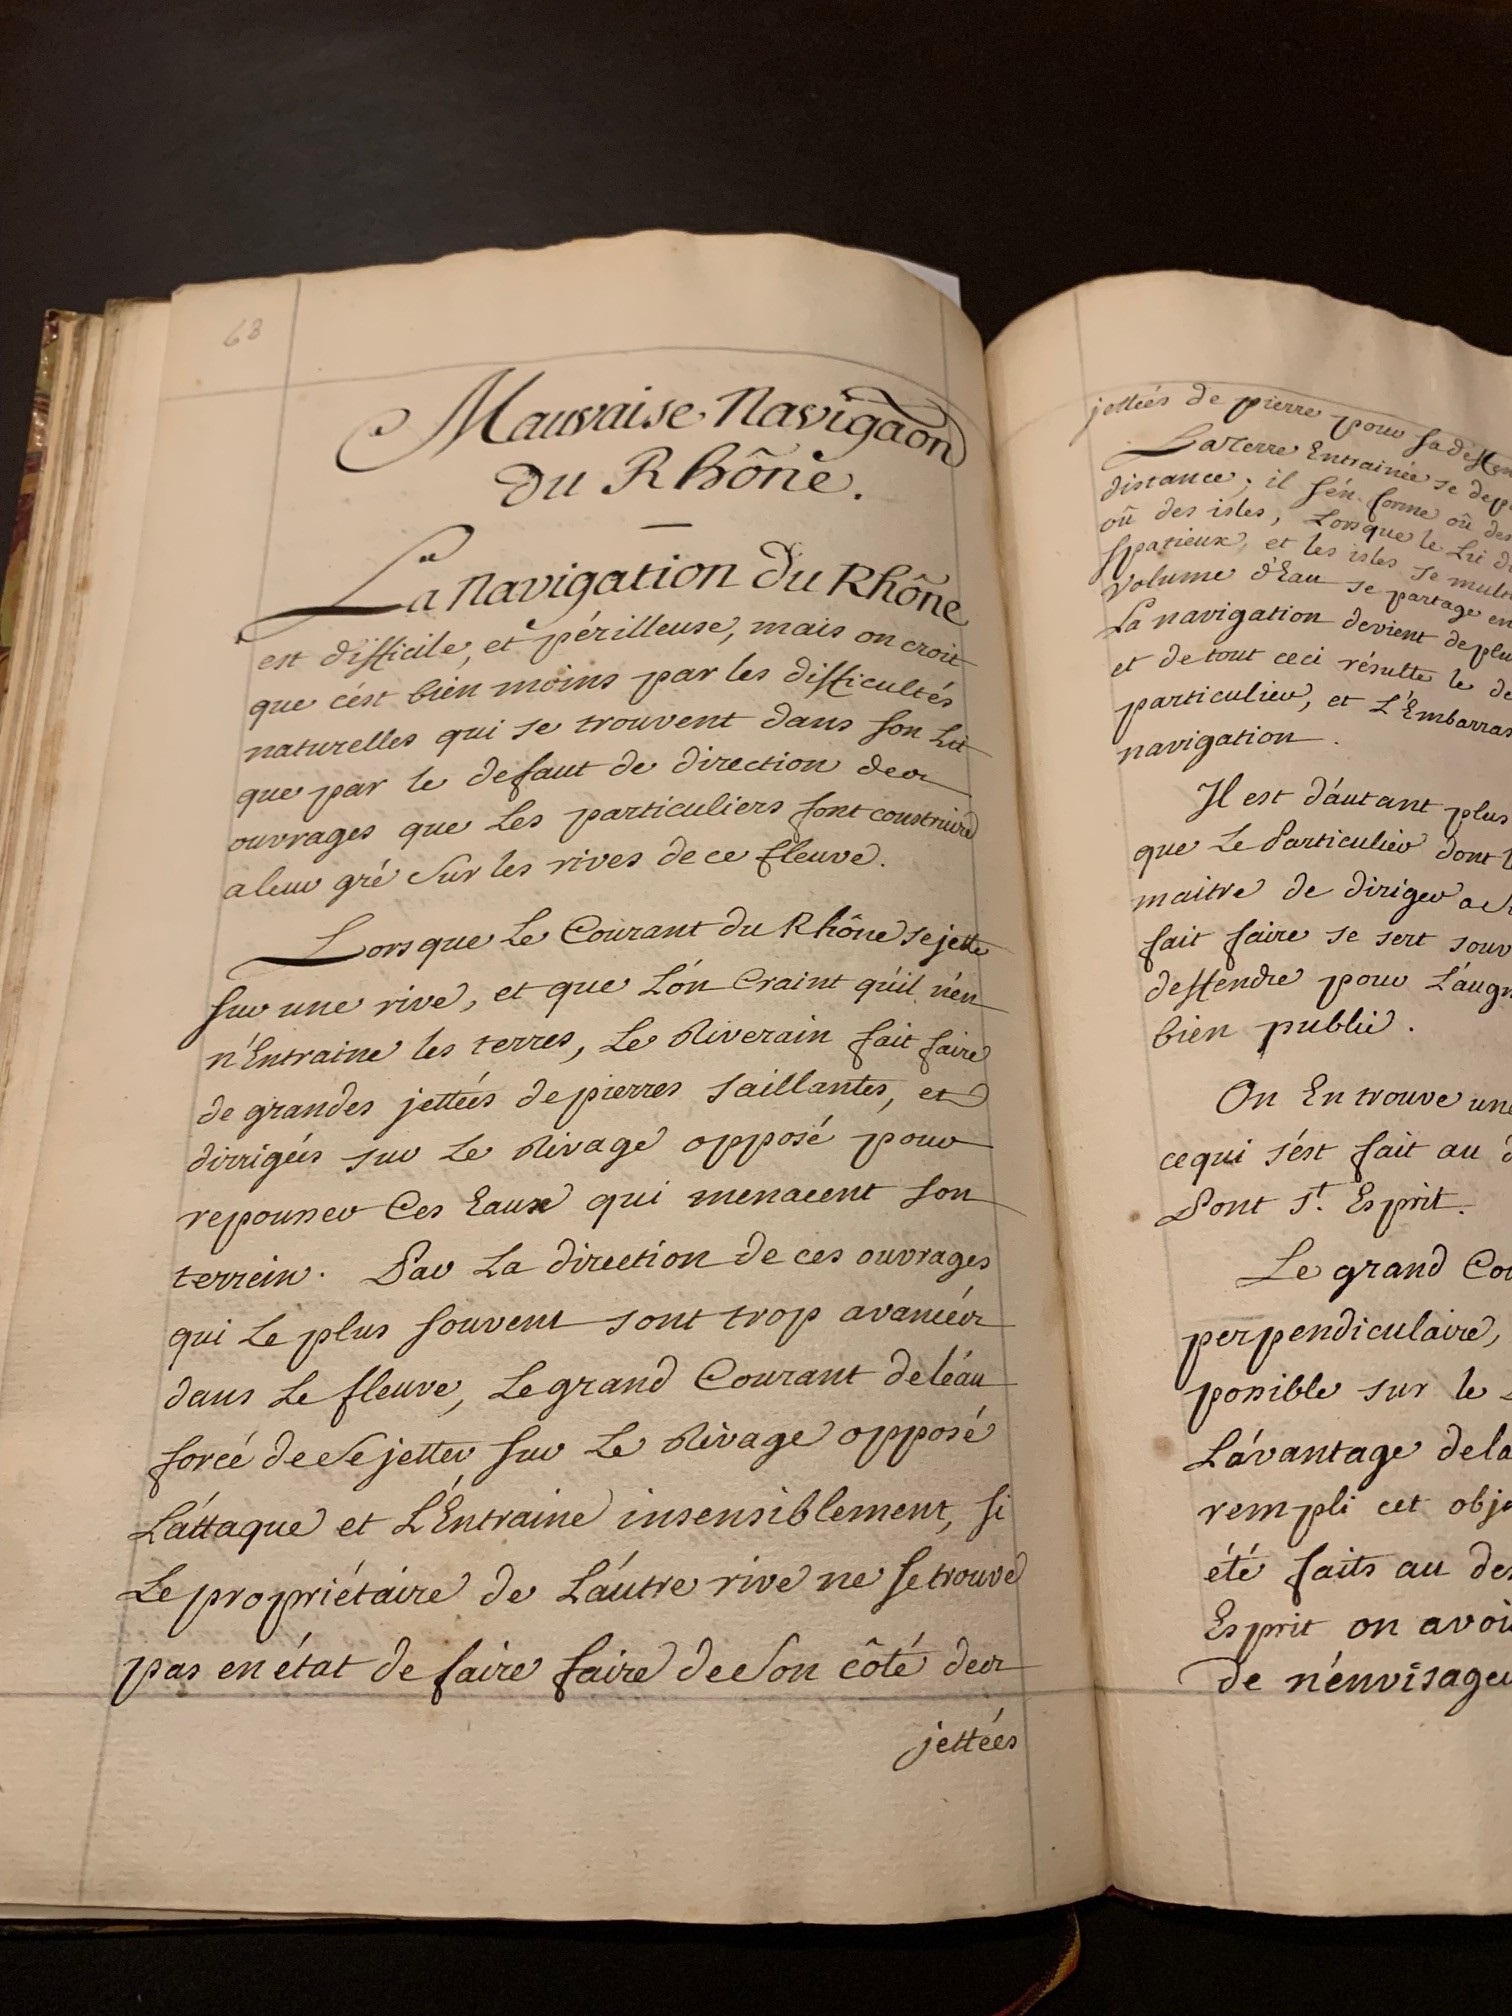 68
Mauvaise Navigãon
Du Rhône.
La Navigation Du Rhône
est difficile, et périlleuse, mais on croit
que c'ést bien moins par les difficultés
naturelles qui se trouvent dans son Lit
que par le defaut de direction des
ouvrages que Les particuliers font construire
a leur gré sur les rives de ce fleuve.
Lorsque Le Courant du Rhône se jette
sur une rive, et que L'ón Craint qu'il n'én
n'Entraine les terres, Le Riverain fait faire
de grandes jettées de pierres saillantes, et
dirrigées sur Le Rivage opposé pour
repousser Ces Eaux qui menacent son
terrein. Par La direction de ces ouvrages
qui Le plus souvent sont trop avancées
dans Le fleuve, Le grand Courant de léau
forcé de se jetter sur Le Rivage opposé
L'áttaque et L'Entraine insensiblement, si
Le propriétaire de L'áutre rive ne se trouve
pas en état de faire faire de son côté des
jettées
jettées de pierre pour sa
La Terre Entrainée se
distance, il s'én forme oû des
oû des isles, Lorsque le Lit
spatieux, et les isles se
volume d'Eau se partage en
La navigation devient de
et de tout ceci résulte le
particulier, et L'Embarras
navigation.
Il est d'áutant plus
que Le Particulier dont
maitre de diriger a
fait faire se sert
deffendre pour
bien public.
On En trouve une
ce qui s'ést fait au
Pont St. Esprit.
Le grand
perpendiculaire,
possible sur le
L'ávantage de la
rempli cet
été faits au
Esprit on
de n'énvisager